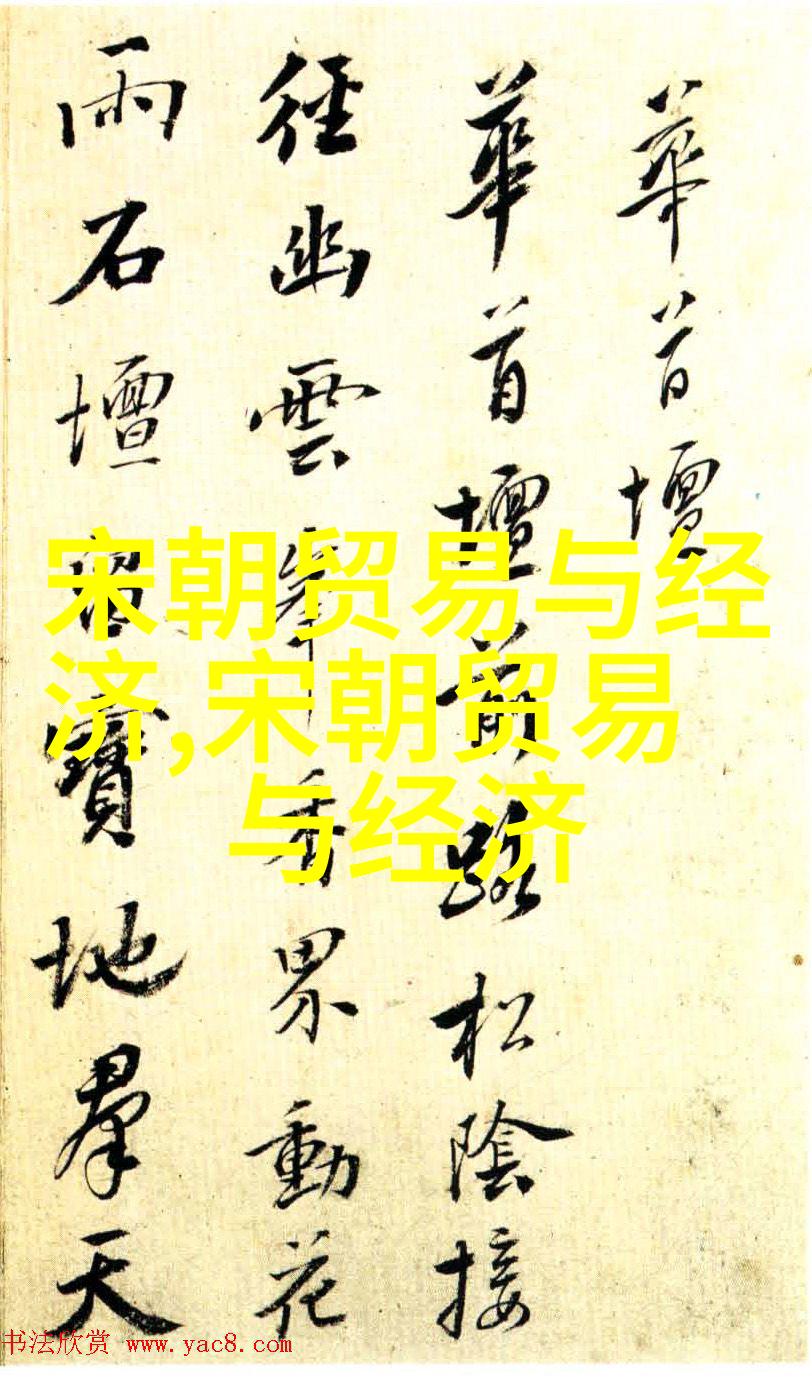 華首壇
華首壇前路松陰接
徑幽雲峯香界動花
雨石壇留寶地羣天
宋朝贸易与经
济,宋朝贸易
与经济
书法欣赏 www.yac8.com